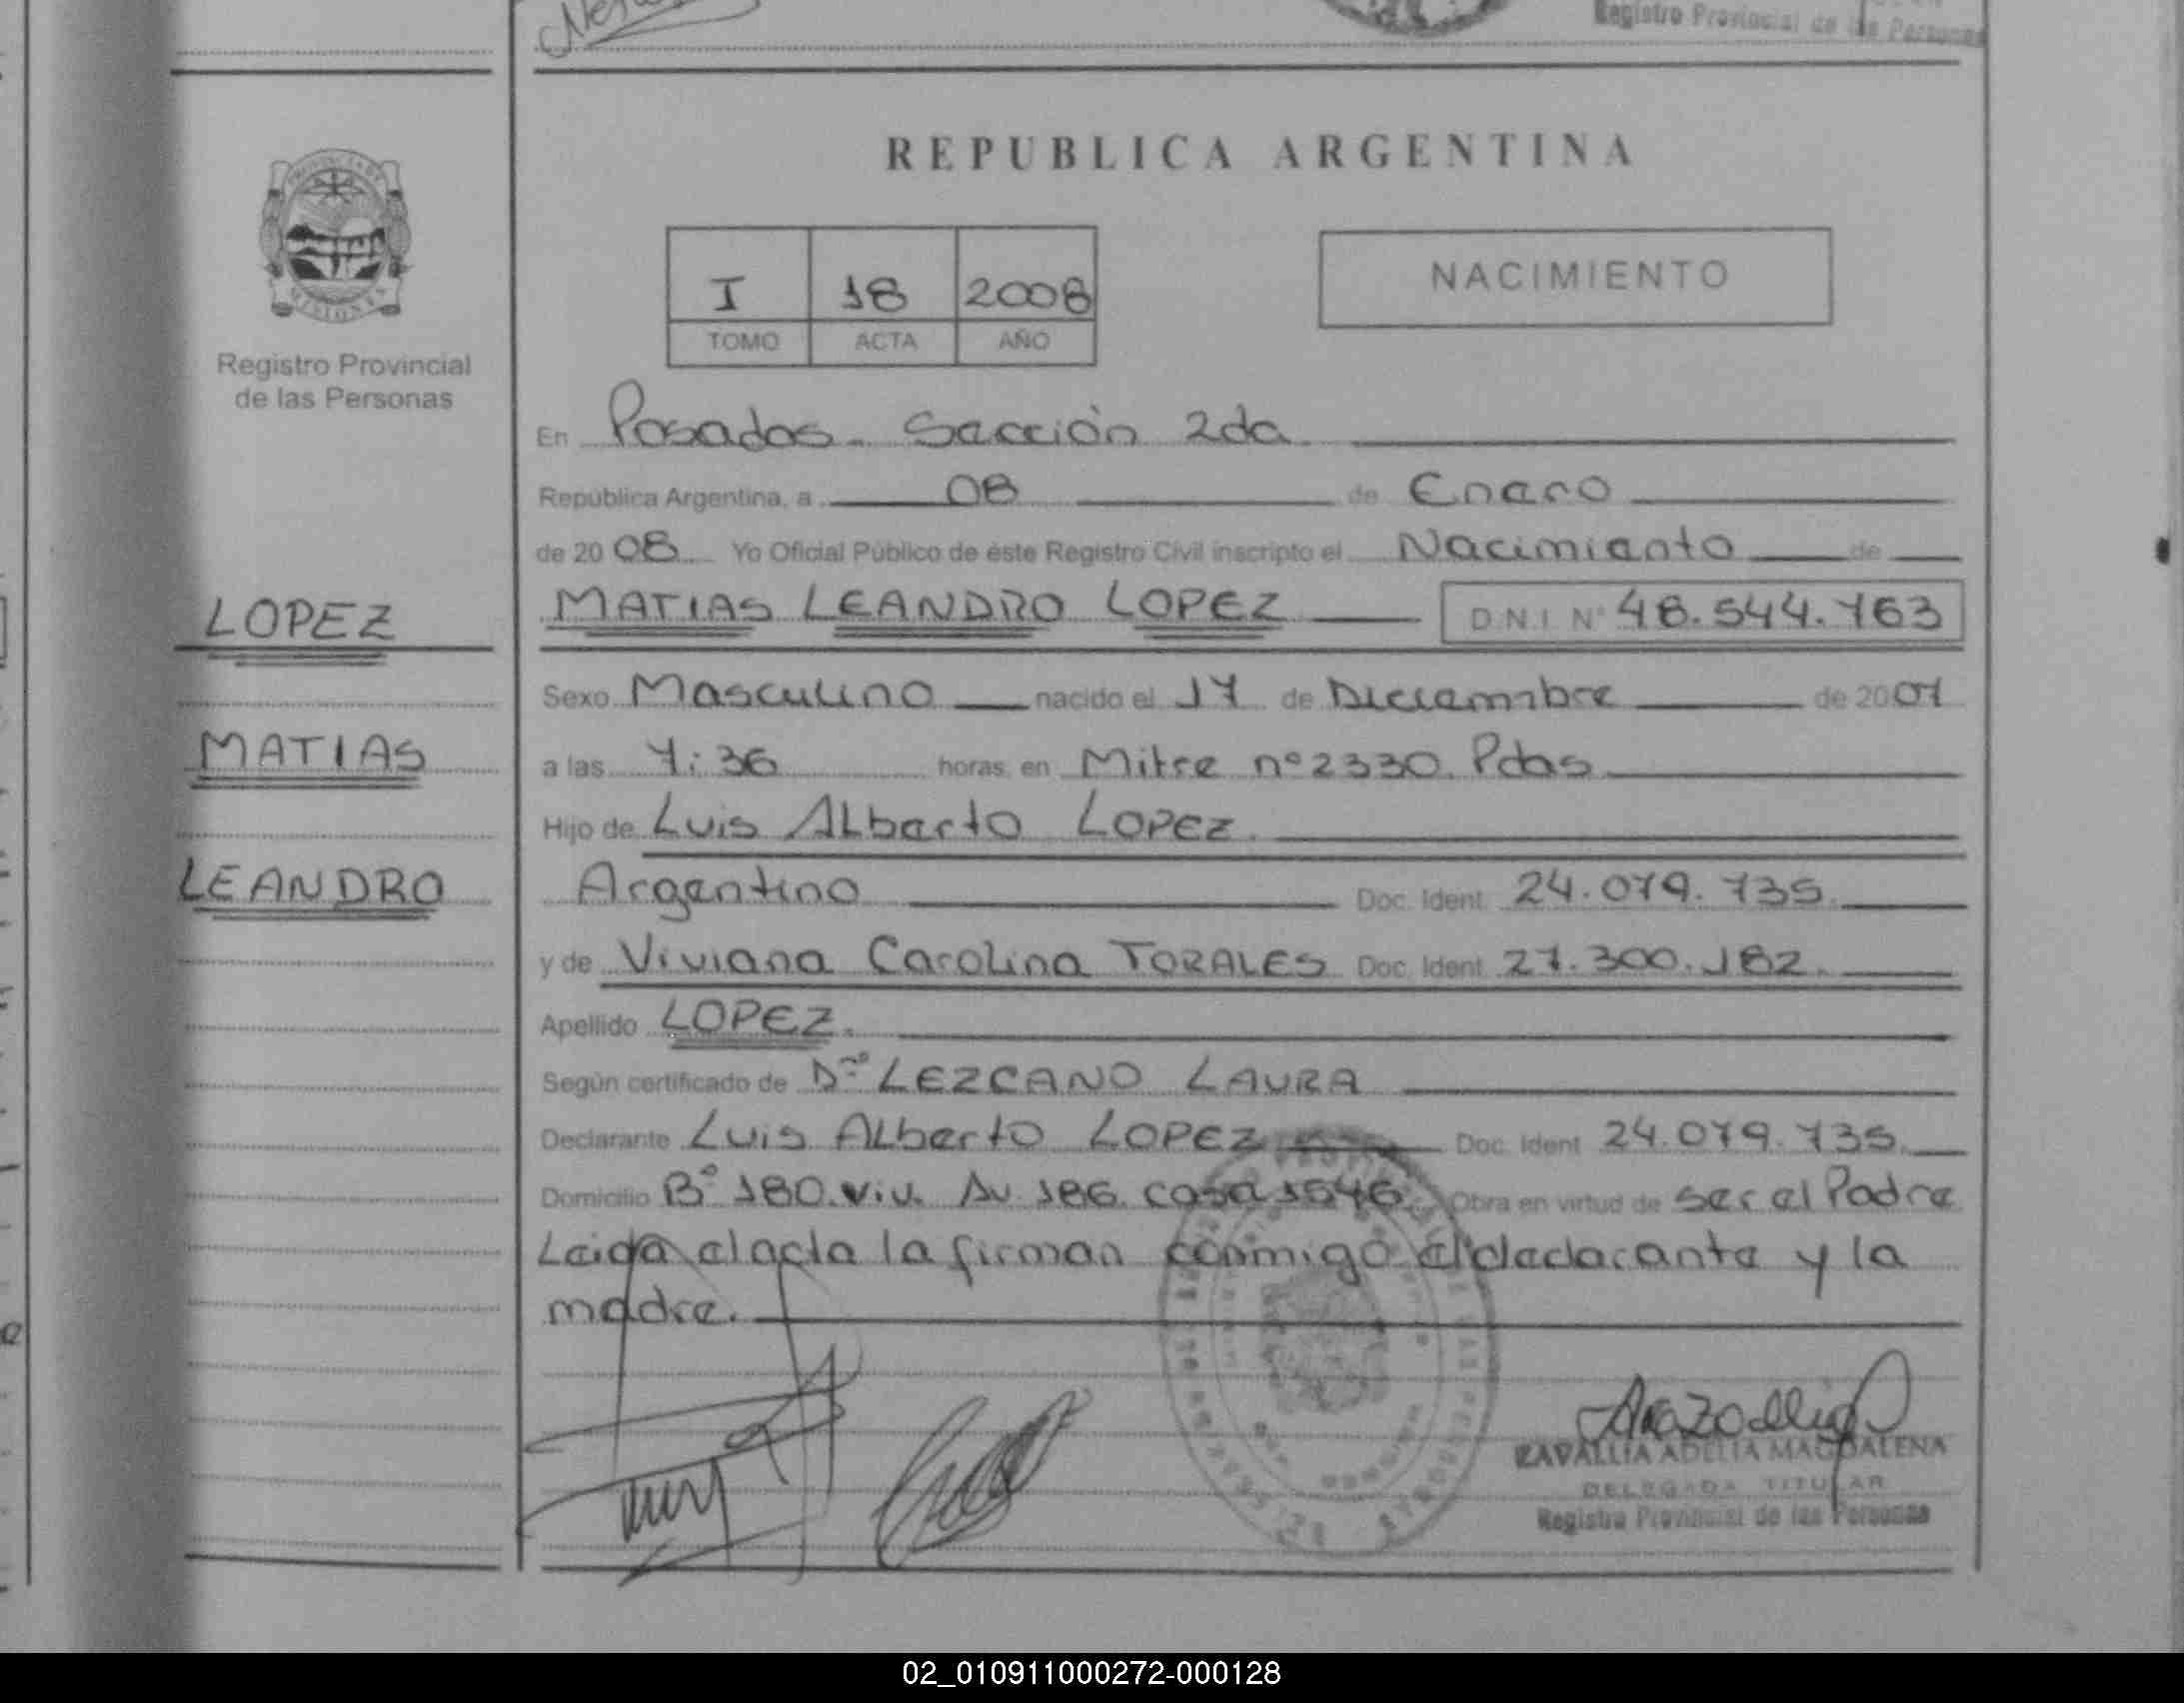 Registro Provincial de las Personas
REPUBLICA ARGENTINA
NACIMIENTO
I 18 2008
TOMO ACTA AÑO
PROVINCIA DE
MISIONES
Registro Provincial
de las Personas
LOPEZ
MATIAS
LEANDRO
En Posadas. Sección 2da
República Argentina, a 08 de Enero
de 20 08 Yo Oficial Público de éste Registro Civil inscripto el Nacimiento de
MATIAS LEANDRO LOPEZ D.N.I. Nº 48.544.763
Sexo Masculino nacido el 17 de Diciembre de 2007
a las 7:36 horas, en Mitre nº 2330. Pdas
Hijo de Luis Alberto LOPEZ.
Argentino Doc. Ident. 24.079.735.
y de Viviana Carolina TORALES Doc. Ident. 27.300.182.
Apellido LOPEZ.
Según certificado de Dra LEZCANO LAURA
Declarante Luis Alberto LOPEZ Doc. Ident. 24.079.735.
Domicilio Bº 180.viv. Av 186. casa 1546 Obra en virtud de ser el Padre
Leida el acta la firman conmigo el declarante y la
madre.
ZAVALLIA ADELIA MAGDALENA
DELEGADA TITULAR
Registro Provincial de las Personas
02_010911000272-000128